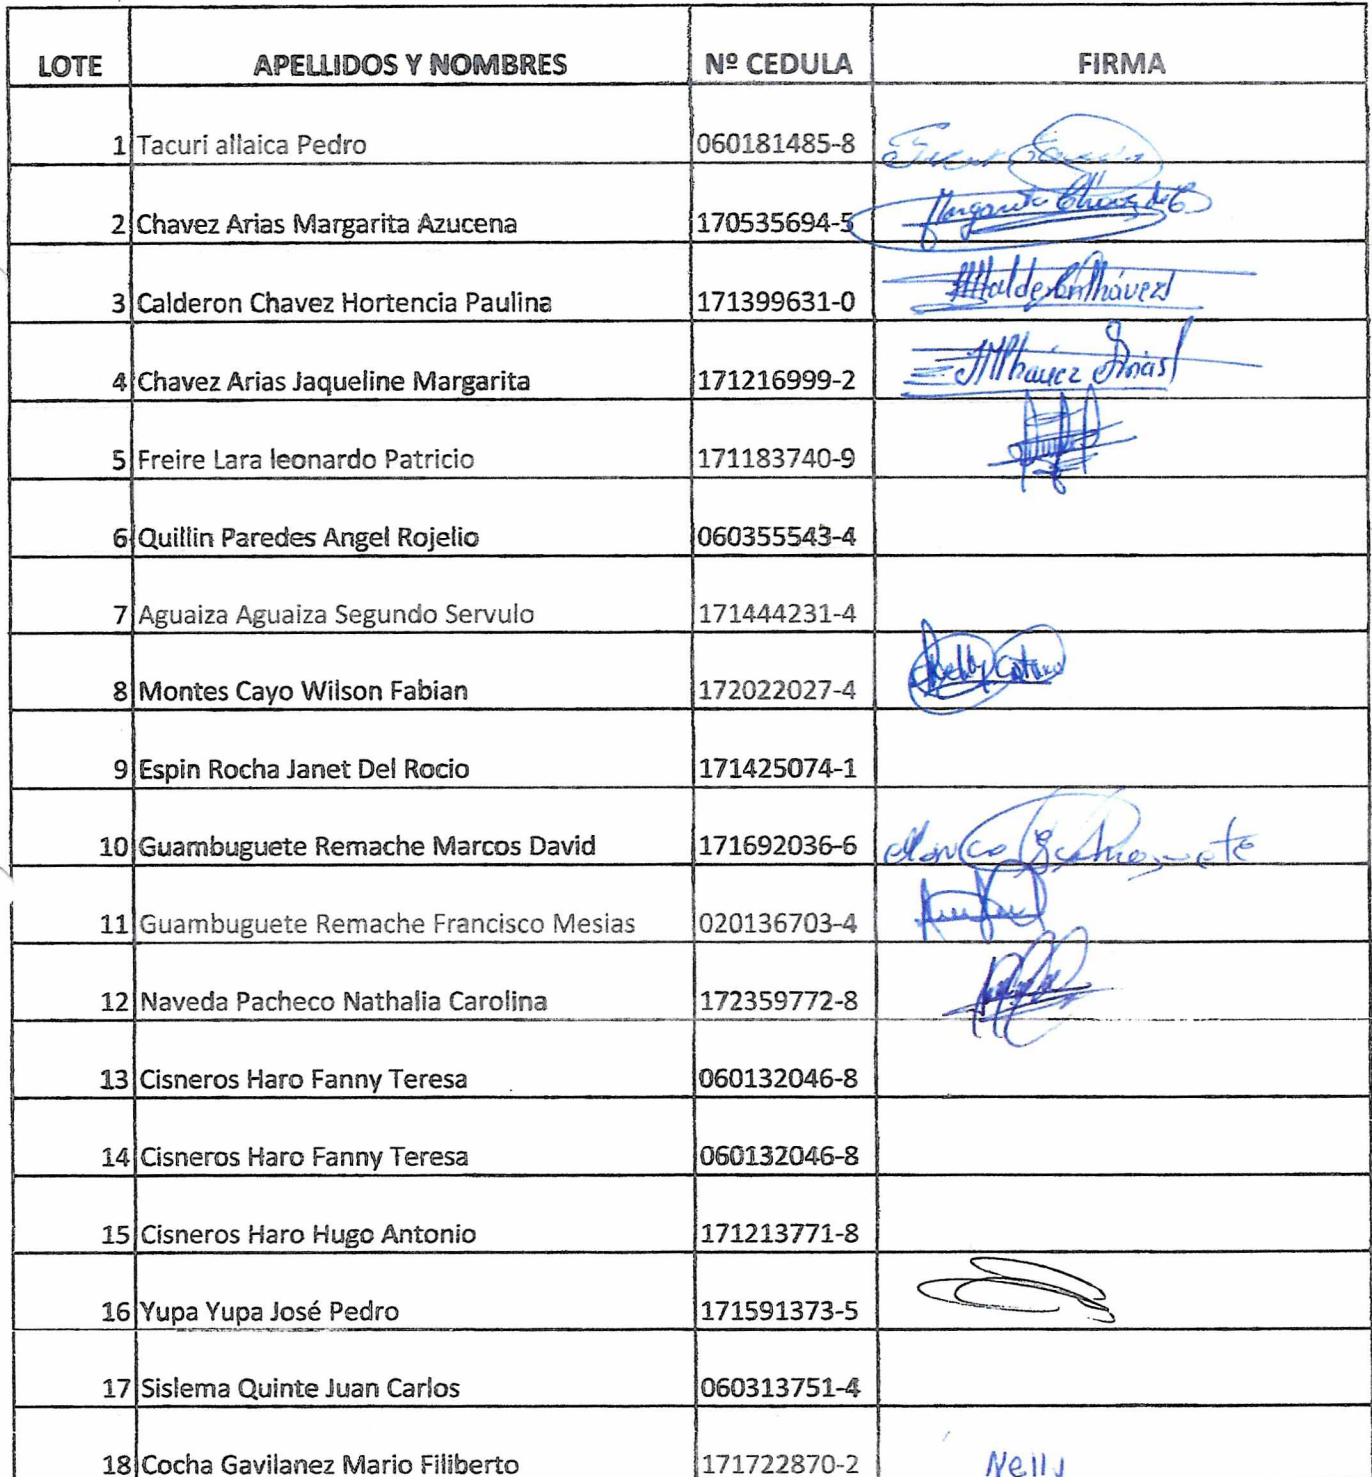 LOTE APELLIDOS Y NOMBRES Nº CEDULA FIRMA
1 Tacuri allaica Pedro 060181485-8
2 Chavez Arias Margarita Azucena 170535694-5 Margarita Chavez de C
3 Calderon Chavez Hortencia Paulina 171399631-0
4 Chavez Arias Jaqueline Margarita 171216999-2 JMChávez Arias
5 Freire Lara leonardo Patricio 171183740-9
6 Quillin Paredes Angel Rojelio 060355543-4
7 Aguaiza Aguaiza Segundo Servulo 171444231-4
8 Montes Cayo Wilson Fabian 172022027-4 Nelly
9 Espin Rocha Janet Del Rocio 171425074-1
10 Guambuguete Remache Marcos David 171692036-6
11 Guambuguete Remache Francisco Mesias 020136703-4
12 Naveda Pacheco Nathalia Carolina 172359772-8
13 Cisneros Haro Fanny Teresa 060132046-8
14 Cisneros Haro Fanny Teresa 060132046-8
15 Cisneros Haro Hugo Antonio 171213771-8
16 Yupa Yupa José Pedro 171591373-5
17 Sislema Quinte Juan Carlos 060313751-4
18 Cocha Gavilanez Mario Filiberto 171722870-2 Nelly